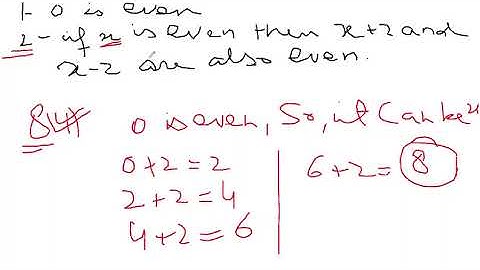 1- 0 is even
2- if x is even then x+2 and
x-2 are also even.
84
0 is even, So, it Can be x
0+2=2
2+2=4
4+2=6
6+2=8